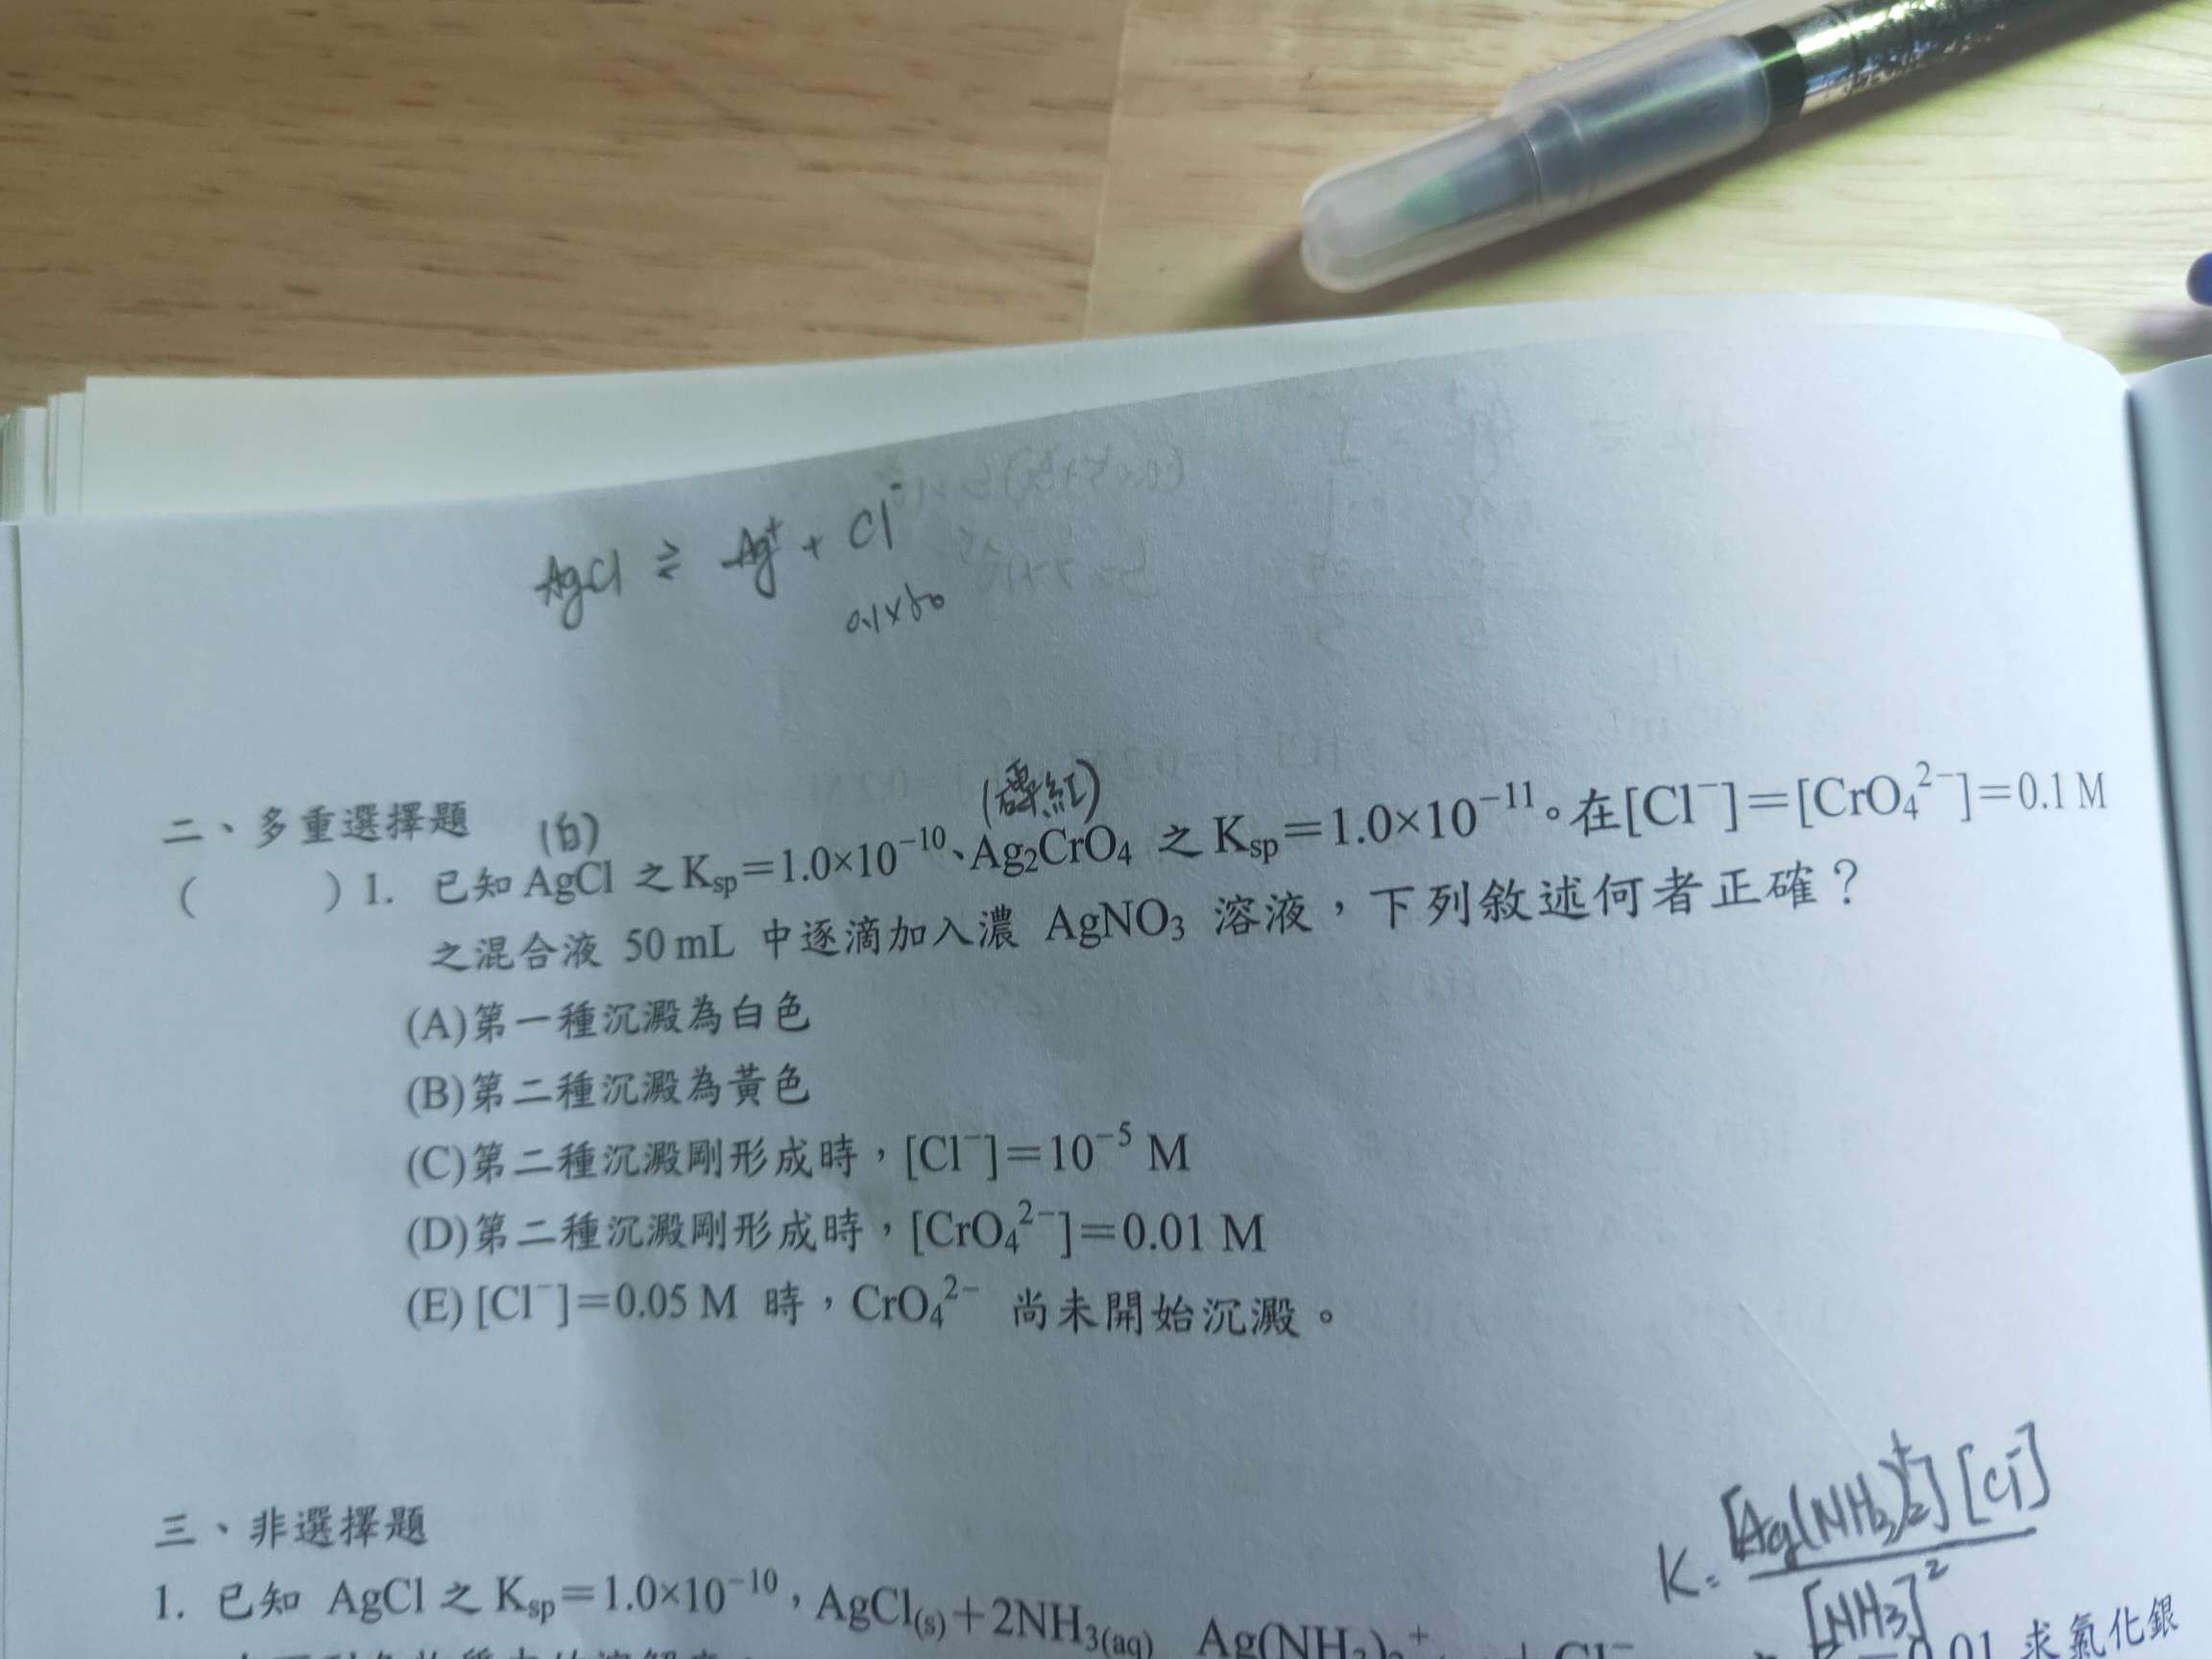 AgCl ⇌ Ag⁺ + Cl⁻
0.1×50
二、多重選擇題
(白) (磚紅)
( )1. 已知 AgCl 之 Ksp=1.0×10⁻¹⁰、Ag₂CrO₄ 之 Ksp=1.0×10⁻¹¹。在[Cl⁻]=[CrO₄²⁻]=0.1 M
之混合液 50 mL 中逐滴加入濃 AgNO₃ 溶液，下列敘述何者正確？
(A)第一種沉澱為白色
(B)第二種沉澱為黃色
(C)第二種沉澱剛形成時，[Cl⁻]=10⁻⁵ M
(D)第二種沉澱剛形成時，[CrO₄²⁻]=0.01 M
(E) [Cl⁻]=0.05 M 時，CrO₄²⁻ 尚未開始沉澱。
K = [Ag(NH₃)₂⁺][Cl⁻]
[NH₃]²
三、非選擇題
1. 已知 AgCl 之 Ksp=1.0×10⁻¹⁰，AgCl(s)+2NH₃(aq) Ag(NH₃)₂⁺ 0.01 求氯化銀